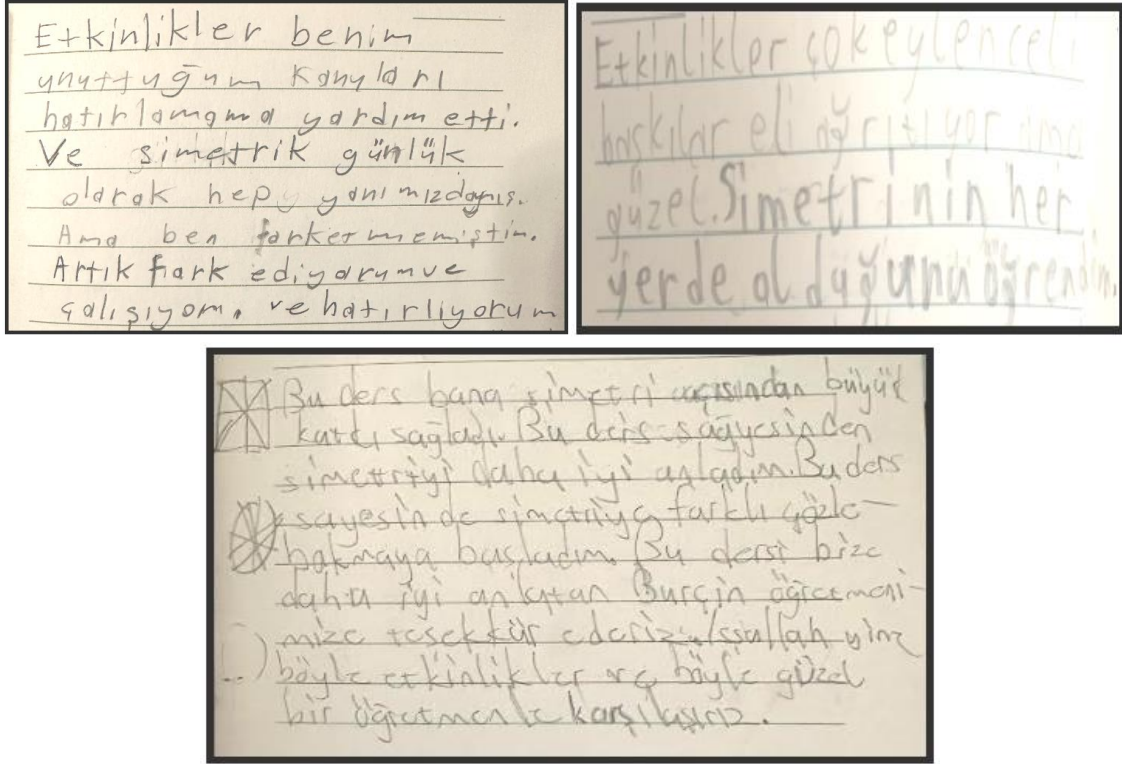 Etkinlikler benim
unuttuğum konuları
hatırlamama yardım etti.
Ve simetrik günlük
olarak hep yanımızdaymış.
Ama ben farketmemiştim.
Artık fark ediyorumve
çalışıyom. ve hatırlıyorum
Etkinlikler çok eylenceli
baskılar eli ağrıtıyor ama
güzel. Simetrinin her
yerde olduğunu öğrendim.
Bu ders bana simetri açısından büyük
katkı sağladı. Bu ders sağyesinden
simetriyi daha iyi anladım. Bu ders
sayesinde simetriye farklı gözle
bakmaya başladım. Bu dersi bize
daha iyi anlatan Burçin öğretmeni-
mize teşekkür ederiz. yine
böyle etkinlikler ve böyle güzel
bir öğretmenle karşılaşırız.